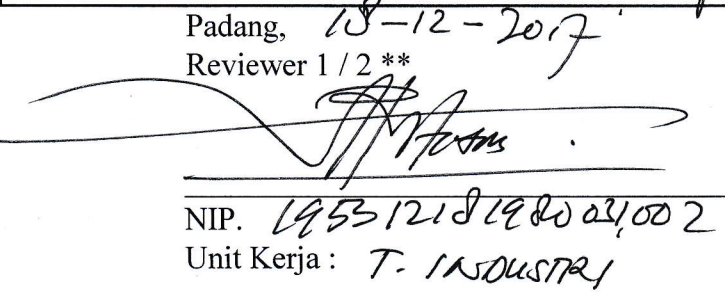 Padang, 18-12-2017
Reviewer 1 / 2 **
NIP. 195312181980031002
Unit Kerja : T. INDUSTRI